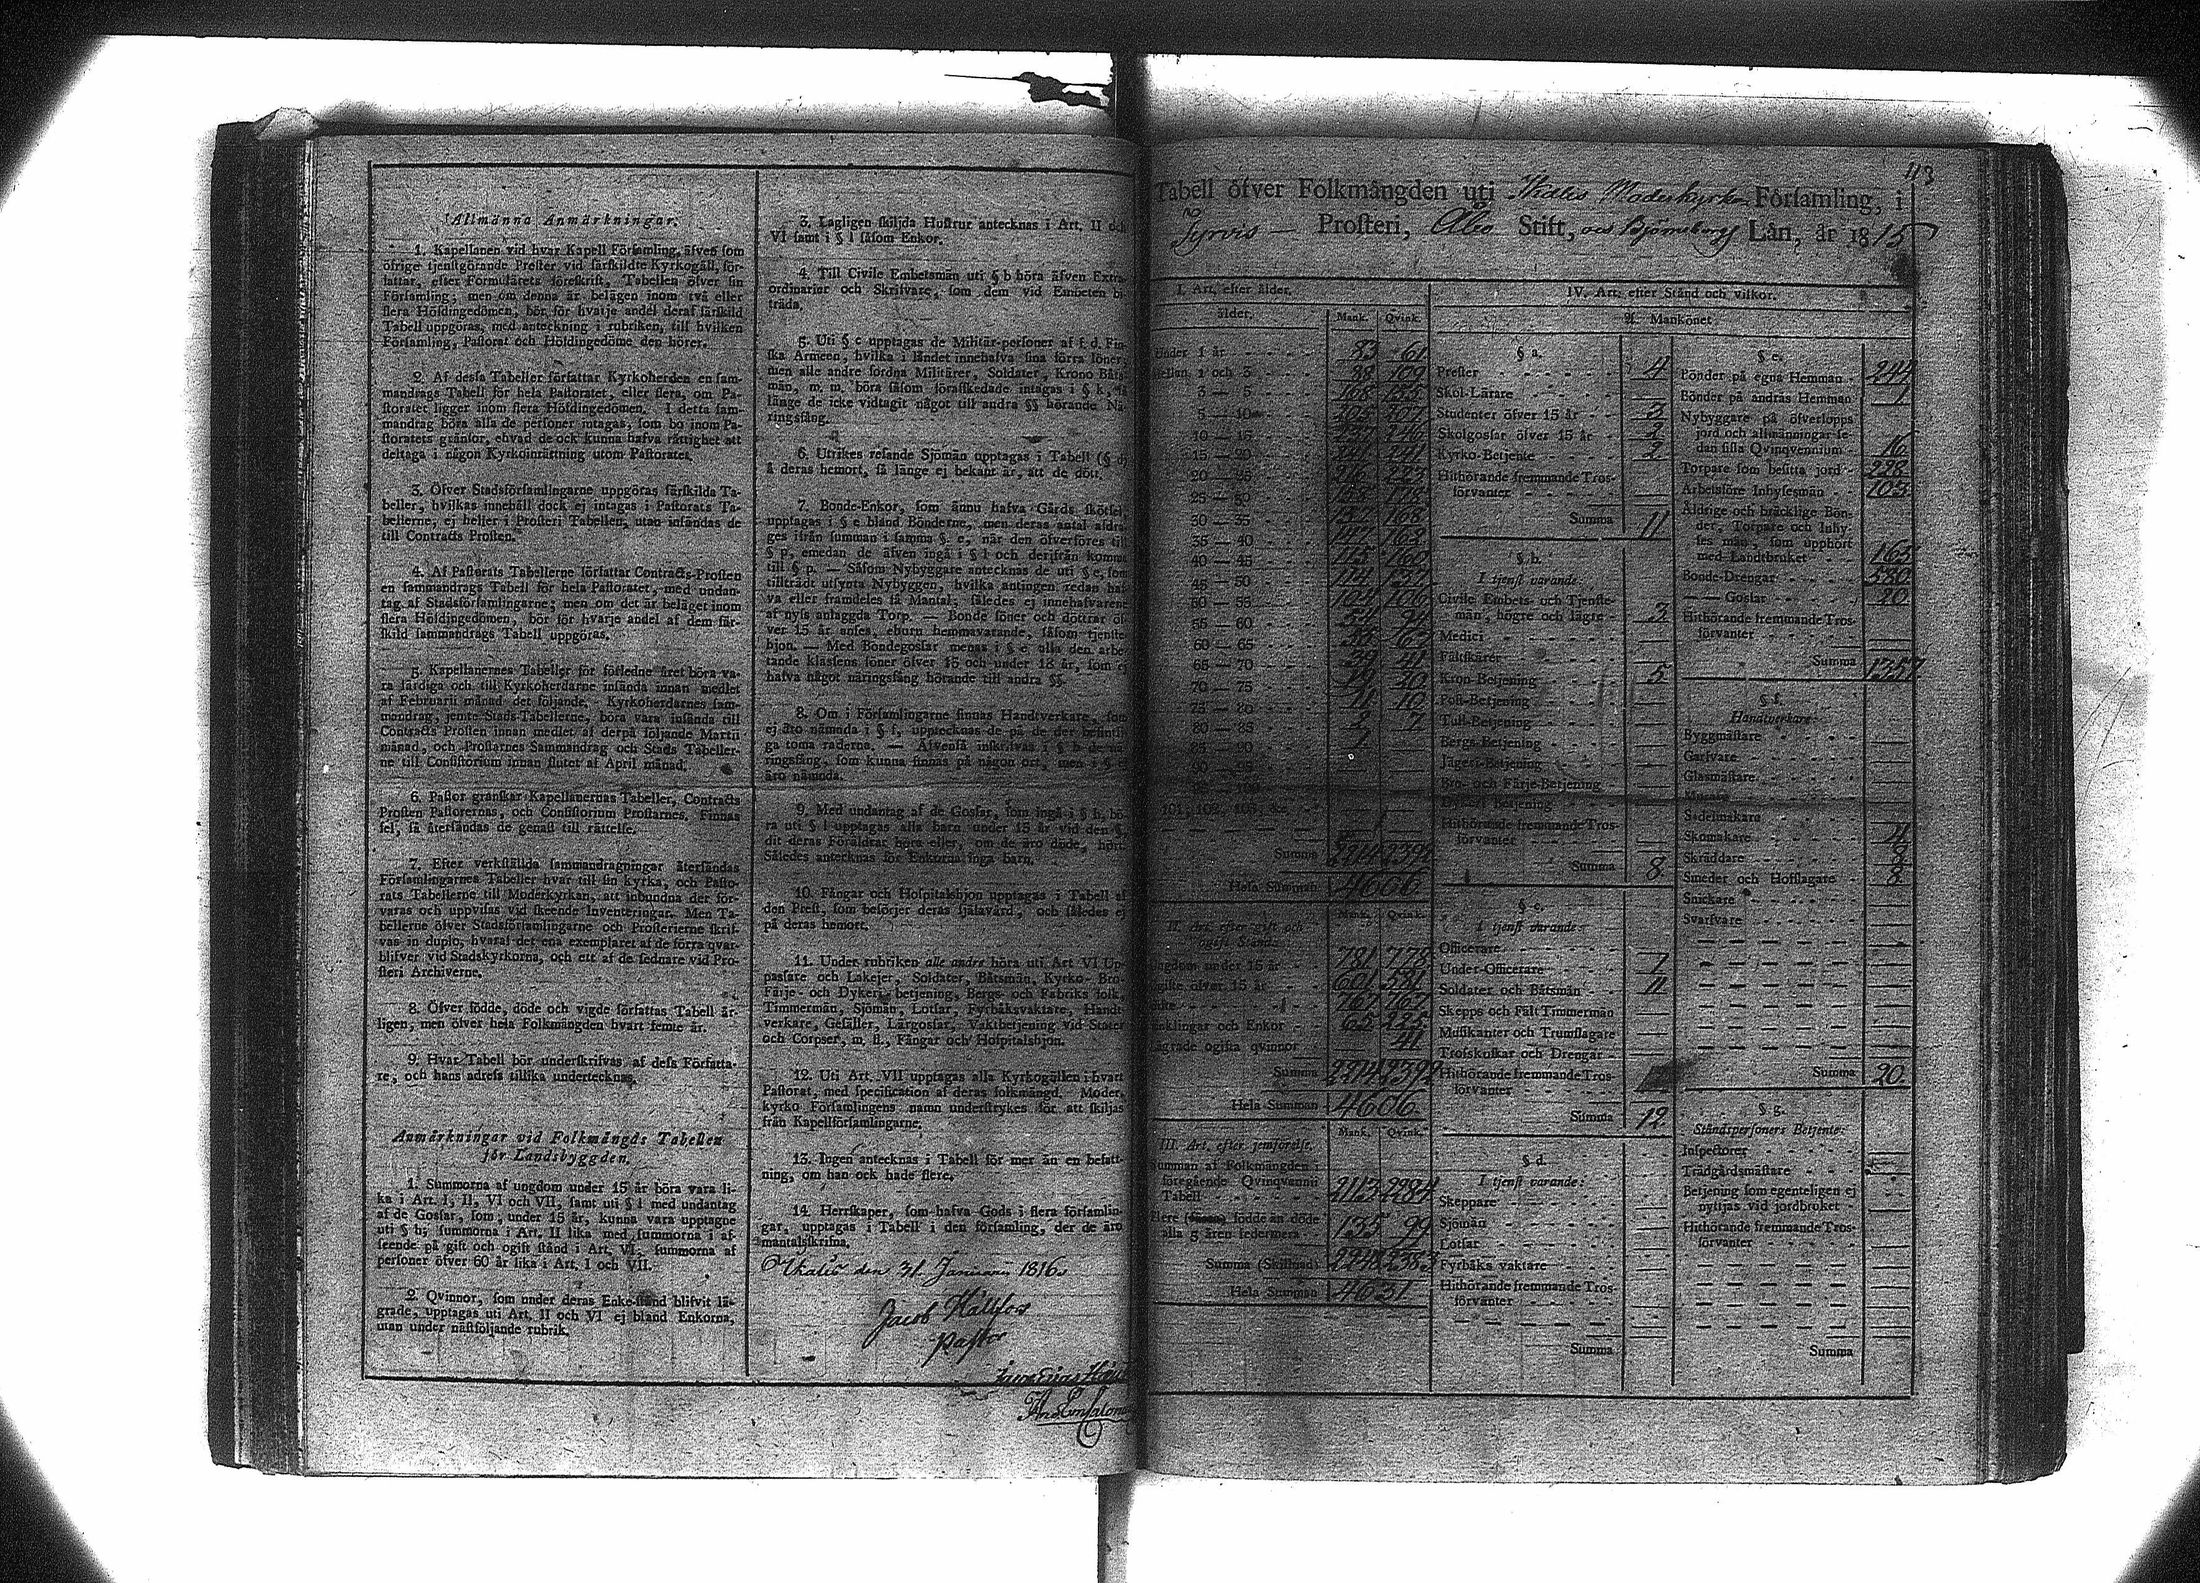 Allmänna Anmärkningar.
1. Kapellanen vid hvar Kapell Församling, äfven som
öfrige tjenstgörande Prester vid särskildte Kyrkogäll, för-
fattar, efter Formulärets föreskrift, Tabellen öfver sin
Församling; men om denna är belägen inom två eller
flera Höfdingedömen, bör för hvarje andel deraf särskild
Tabell uppgöras, med anteckning i rubriken, till hvilken
Församling, Pastorat och Höfdingedöme den hörer.
2. Af dessa Tabeller författar Kyrkoherden en sam-
mandrags Tabell för hela Pastoratet, eller flera, om Pa-
storatet ligger inom flera Höfdingedömen. I detta sam-
mandrag böra alla de personer intagas, som bo inom Pa-
storatets gränsor, ehvad de ock kunna hafva rättighet att
deltaga i någon Kyrkoinrättning utom Pastoratet.
3. Öfver Stadsförsamlingarne uppgöras särskilda Ta-
beller, hvilkas innehåll dock ej intagas i Pastorats Ta-
bellerne, ej heller i Prosteri Tabellen, utan insändas de
till Contracts Prosten.
4. Af Pastorats Tabellerne författar Contracts-Prosten
en sammandrags Tabell för hela Pastoratet, med undan-
tag af Stadsförsamlingarne; men om det är beläget inom
flera Höfdingedömen, bör för hvarje andel af dem sär-
skild sammandrags Tabell uppgöras.
5. Kapellanernes Tabeller för förledne året böra va-
ra färdiga och till Kyrkoherdarne insända innan medlet
af Februarii månad det följande, Kyrkoherdarnes sam-
mandrag, jemte Stads-Tabellerne, böra vara insända till
Contracts Prosten innan medlet af derpå följande Martii
månad, och Prostarnes Sammandrag och Stads Tabeller-
ne till Consistorium innan slutet af April månad.
6. Pastor granskar Kapellanernas Tabeller, Contracts
Prosten Pastorernas, och Consistorium Prostarnes. Finnas
fel, så återsändas de genast till rättelse.
7. Efter verkställda sammandragningar återsändas
Församlingarnes Tabeller hvar till sin kyrka, och Pasto-
rats Tabellerne till Moderkyrkan, att inbundna der för-
varas och uppvisas vid skeende Inventeringar. Men Ta-
bellerne öfver Stadsförsamlingarne och Prosterierne skrif-
vas in duplo, hvaraf det ena exemplaret af de förra qvar-
blifver vid Stadskyrkorna, och ett af de sednare vid Pro-
steri Archiverne.
8. Öfver födde, döde och vigde författas Tabell år-
ligen, men öfver hela Folkmängden hvart femte år.
9. Hvar Tabell bör underskrifvas af dess Författa-
re, och hans adress tillika undertecknas.
Anmärkningar vid Folkmängds Tabellen
för Landsbyggden.
1. Summorna af ungdom under 15 år böra vara li-
ka i Art. I, II, VI och VII, samt uti § l med undantag
af de Gossar, som, under 15 år, kunna vara upptagne
uti § h; summorna i Art. II lika med summorna i af-
seende på gift och ogift stånd i Art. VI, summorna af
personer öfver 60 år lika i Art. I och VII.
2. Qvinnor, som under deras Enke-stånd blifvit lä-
grade, upptagas uti Art. II och VI ej bland Enkorna,
utan under nästföljande rubrik.
3. Lagligen skiljda Hustrur antecknas i Art. II och
VI samt i § l såsom Enkor.
4. Till Civile Embetsmän uti § b höra äfven Extra-
ordinarier och Skrifvare, som dem vid Embeten bi-
träda.
5. Uti § c upptagas de Militär-personer af f. d. Fin-
ska Armeen, hvilka i landet innehafva sina förra löner;
men alle andre fordna Militärer, Soldater, Krono Båts-
män, m. m. böra såsom förafskedade intagas i § k, så
länge de icke vidtagit något till andra §§ hörande Nä-
ringsfång.
6. Utrikes resande Sjömän upptagas i Tabell (§ d)
å deras hemort, så länge ej bekant är, att de dött.
7. Bonde-Enkor, som ännu hafva Gårds skötsel,
upptagas i § e bland Bönderne, men deras antal afdra-
ges ifrån summan i samma § e, när den öfverföres till
§ p, emedan de äfven ingå i § l och derifrån komma
till § p. — Såsom Nybyggare antecknas de uti § e, som
tillträdt utsynta Nybyggen, hvilka antingen redan haf-
va eller framdeles få Mantal, således ej innehafvarene
af nyss anlaggda Torp. — Bonde söner och döttrar öf-
ver 15 år anses, ehuru hemmavarande, såsom tjenste-
hjon. — Med Bondegossar menas i § e alla den arbe-
tande klassens söner öfver 15 och under 18 år, som ej
hafva något näringsfång hörande till andra §§.
8. Om i Församlingarne finnas Handtverkare, som
ej äro nämnda i § f, upptecknas de på de der befintli-
ga toma raderna. — Äfvenså inskrifvas i § h de nä-
ringsfång, som kunna finnas på någon ort, men i § ej
äro nämnda.
9. Med undantag af de Gossar, som ingå i § h, bö-
ra uti § l upptagas alla barn under 15 år vid den §,
dit deras Föräldrar höra eller, om de äro döde, hört.
Således antecknas för Enkorna inga barn.
10. Fångar och Hospitalshjon upptagas i Tabell af
den Prest, som besörjer deras själavård, och således ej
på deras hemort.
11. Under rubriken alle andre höra uti Art VI Up-
passare och Lakejer, Soldater, Båtsmän, Kyrko- Bro-
Färje- och Dykeri betjening, Bergs- och Fabriks folk,
Timmermän, Sjömän, Lotsar, Fyrbåksvaktare, Handt-
verkare, Gesäller, Lärgossar, Vaktbetjening vid Stater
och Corpser, m. fl., Fångar och Hospitalshjon.
12. Uti Art. VII upptagas alla Kyrkogällen i hvart
Pastorat, med specification af deras folkmängd. Moder-
kyrko Församlingens namn understrykes för att skiljas
från Kapellförsamlingarne.
13. Ingen antecknas i Tabell för mer än en befatt-
ning, om han ock hade flere.
14. Herrskaper, som hafva Gods i flera församlin-
gar, upptagas i Tabell i den församling, der de äro
mantalsskrifna.
Ikalis den 31 Januarii 1816.
Jacob Källfors
Pastor
113
Tabell öfver Folkmängden uti Ikalis Moderkyrko Församling, i
Tyrvis — Prosteri, Åbo Stift, och Björneborgs Län, år 1815
I. Art. efter ålder.
ålder. Mank. Qvink.
Under 1 år 83 61
Mellan 1 och 3 88 109
3 — 5
5 — 10 205 307
10 — 15 246
15 — 20 241
20 — 25 223
25 — 30 178
30 — 35 168
35 — 40 147 163
40 — 45 115 160
45 — 50 114 137
50 — 55 104 106
55 — 60 94
60 — 65
65 — 70 39 41
70 — 75 20
75 — 80 11 10
80 — 85 2 7
85 — 90
90 — 95
— 100
101, 102, 103, &c.
Summa 2214 2392
Hela Summan 4606
II. Art. efter gift och ogift Stånd. Mank. Qvink.
Ungdom under 15 år 781 778
Ogifte öfver 15 år 601 581
Gifte 767 767
Enklingar och Enkor 65 225
Lägrade ogifta qvinnor 41
Summa 2214 2392
Hela Summan 4606
III. Art. efter jemförelse. Mank. Qvink.
Summan af Folkmängden i
föregående Qvinqvennii
Tabell 2113 2284
Flere (färre) födde än döde
alla 5 åren sedermera 135 99
Summa (Skillnad) 2248 2383
Hela Summan 4631
IV. Art. efter Stånd och vilkor.
A. Mankönet
§ a.
Prester 4
Skol-Lärare
Studenter öfver 15 år 3
Skolgossar öfver 15 år 2
Kyrko-Betjente 2
Hithörande fremmande Tros-
förvanter
Summa 11
§ b.
I tjenst varande:
Civile Embets- och Tjenste-
män, högre och lägre 3
Medici
Fältskärer
Kron-Betjening 5
Post-Betjening
Tull-Betjening
Bergs-Betjening
Jägeri-Betjening
Bro- och Färje-Betjening
Dykeri Betjening
Hithörande fremmande Tros-
förvanter
Summa 8
§ c.
I tjenst varande:
Officerare
Under-Officerare 1
Soldater och Båtsmän 11
Skepps och Fält Timmermän
Musikanter och Trumslagare
Trosskuskar och Drengar
Hithörande fremmande Tros-
förvanter
Summa 12
§ d.
I tjenst varande:
Skeppare
Sjömän
Lotsar
Fyrbåks vaktare
Hithörande fremmande Tros-
förvanter
Summa
§ e.
Bönder på egna Hemman 244
Bönder på andras Hemman 1
Nybyggare på öfverlopps
jord och allmänningar se-
dan sista Qvinqvennium 16
Torpare som besitta jord 228
Arbetsföre Inhysesmän 103
Åldrige och bräcklige Bön-
der, Torpare och Inhy-
ses män, som upphört
med Landtbruket 165
Bonde-Drengar 580
— — Gossar 20
Hithörande fremmande Tros-
förvanter
Summa 1357
§ f.
Handtverkare:
Byggmästare
Garfvare
Glasmästare
Murare
Sadelmakare
Skomakare 4
Skräddare 8
Smeder och Hofslagare 8
Snickare
Svarfvare
Summa 20
§ g.
Ståndspersoners Betjente:
Inspectorer
Trädgårdsmästare
Betjening som egenteligen ej
nyttjas vid jordbruket
Hithörande fremmande Tros-
förvanter
Summa